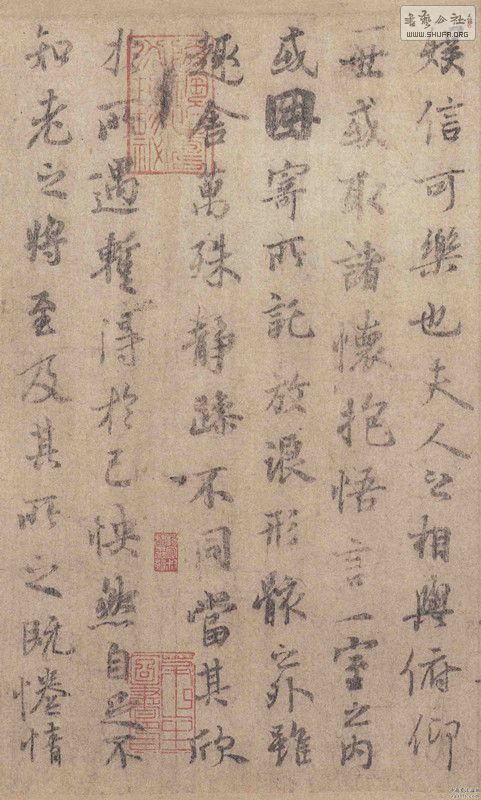 娛信可樂也夫人之相與俯仰
一世或取諸懷抱悟言一室之內
或因寄所託放浪形骸之外雖
趣舍萬殊靜躁不同當其欣
於所遇暫得於己怏然自足不
知老之將至及其所之既惓情
書藝公社
WWW.SHUFA.ORG